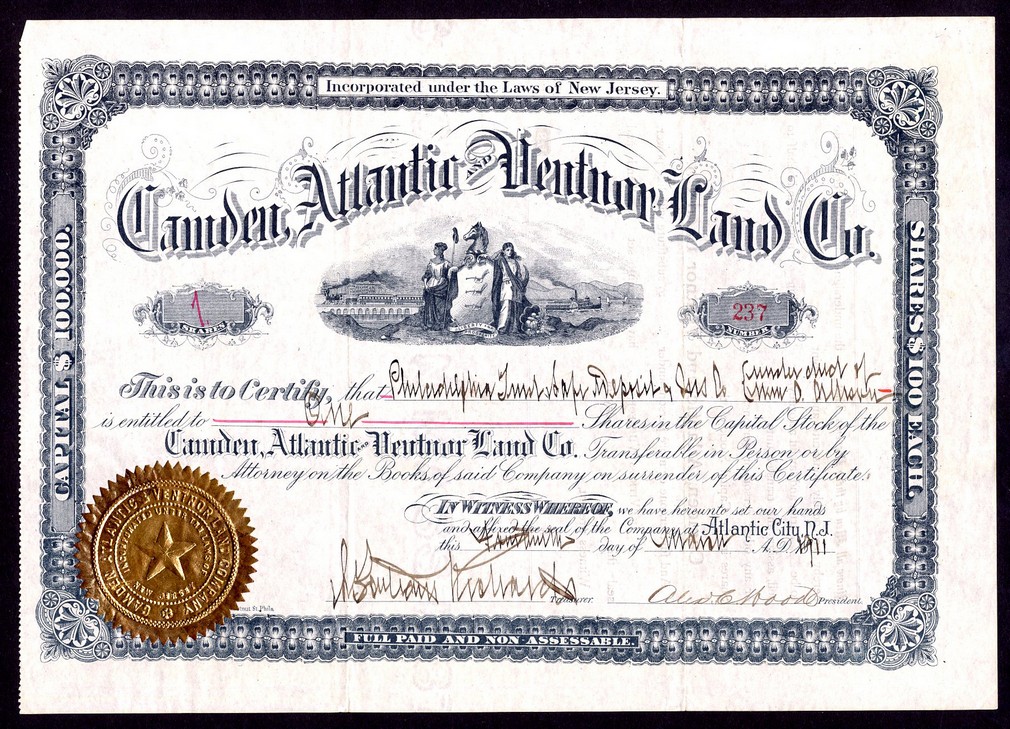 Incorporated under the Laws of New Jersey.
Camden, Atlantic AND Ventnor Land Co.
CAPITAL $ 100.000.
SHARES $ 100 EACH.
1
SHARES
237
NUMBER
This is to Certify, that Philadelphia Trust Safe Deposit & Ins Co (under dict of
is entitled to One Shares in the Capital Stock of the
Camden, Atlantic and Ventnor Land Co. Transferable in Person or by
Attorney on the Books of said Company on surrender of this Certificate.
IN WITNESS WHEREOF, we have hereunto set our hands
and affixed the seal of the Company at Atlantic City, N.J.
this day of March A.D. 1911
Treasurer. President.
FULL PAID AND NON-ASSESSABLE.
CAMDEN, ATLANTIC & VENTNOR LAND COMPANY
NEW JERSEY